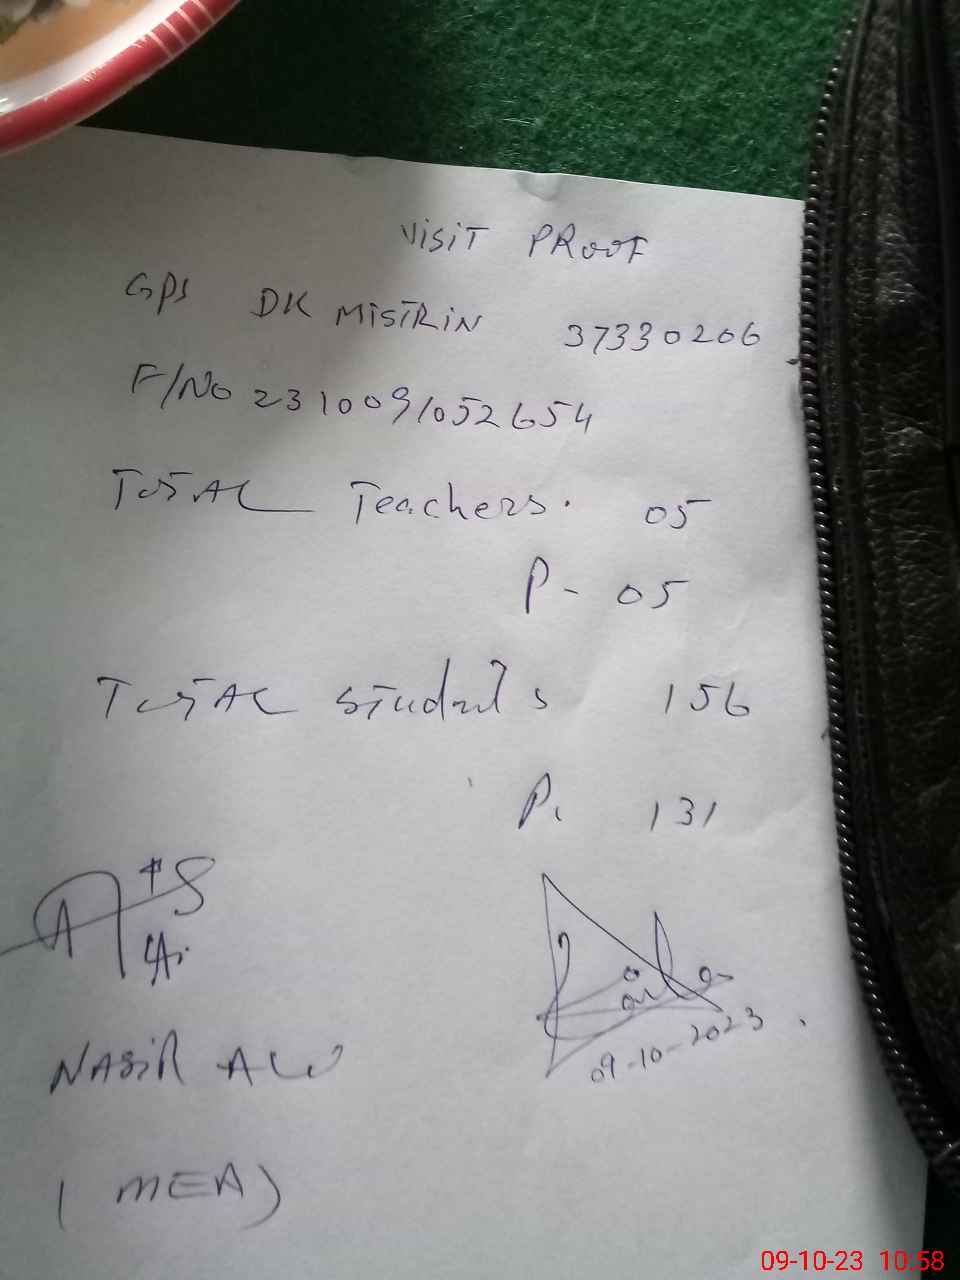 VISIT PROOF
GPS DK MISTRIN 37330206
F/NO 2310091052654
TOTAL Teachers. 05
P- 05
TOTAL students 156
P. 131
NASIR ALI
(MEA)
09-10-2023
09-10-23 10:58